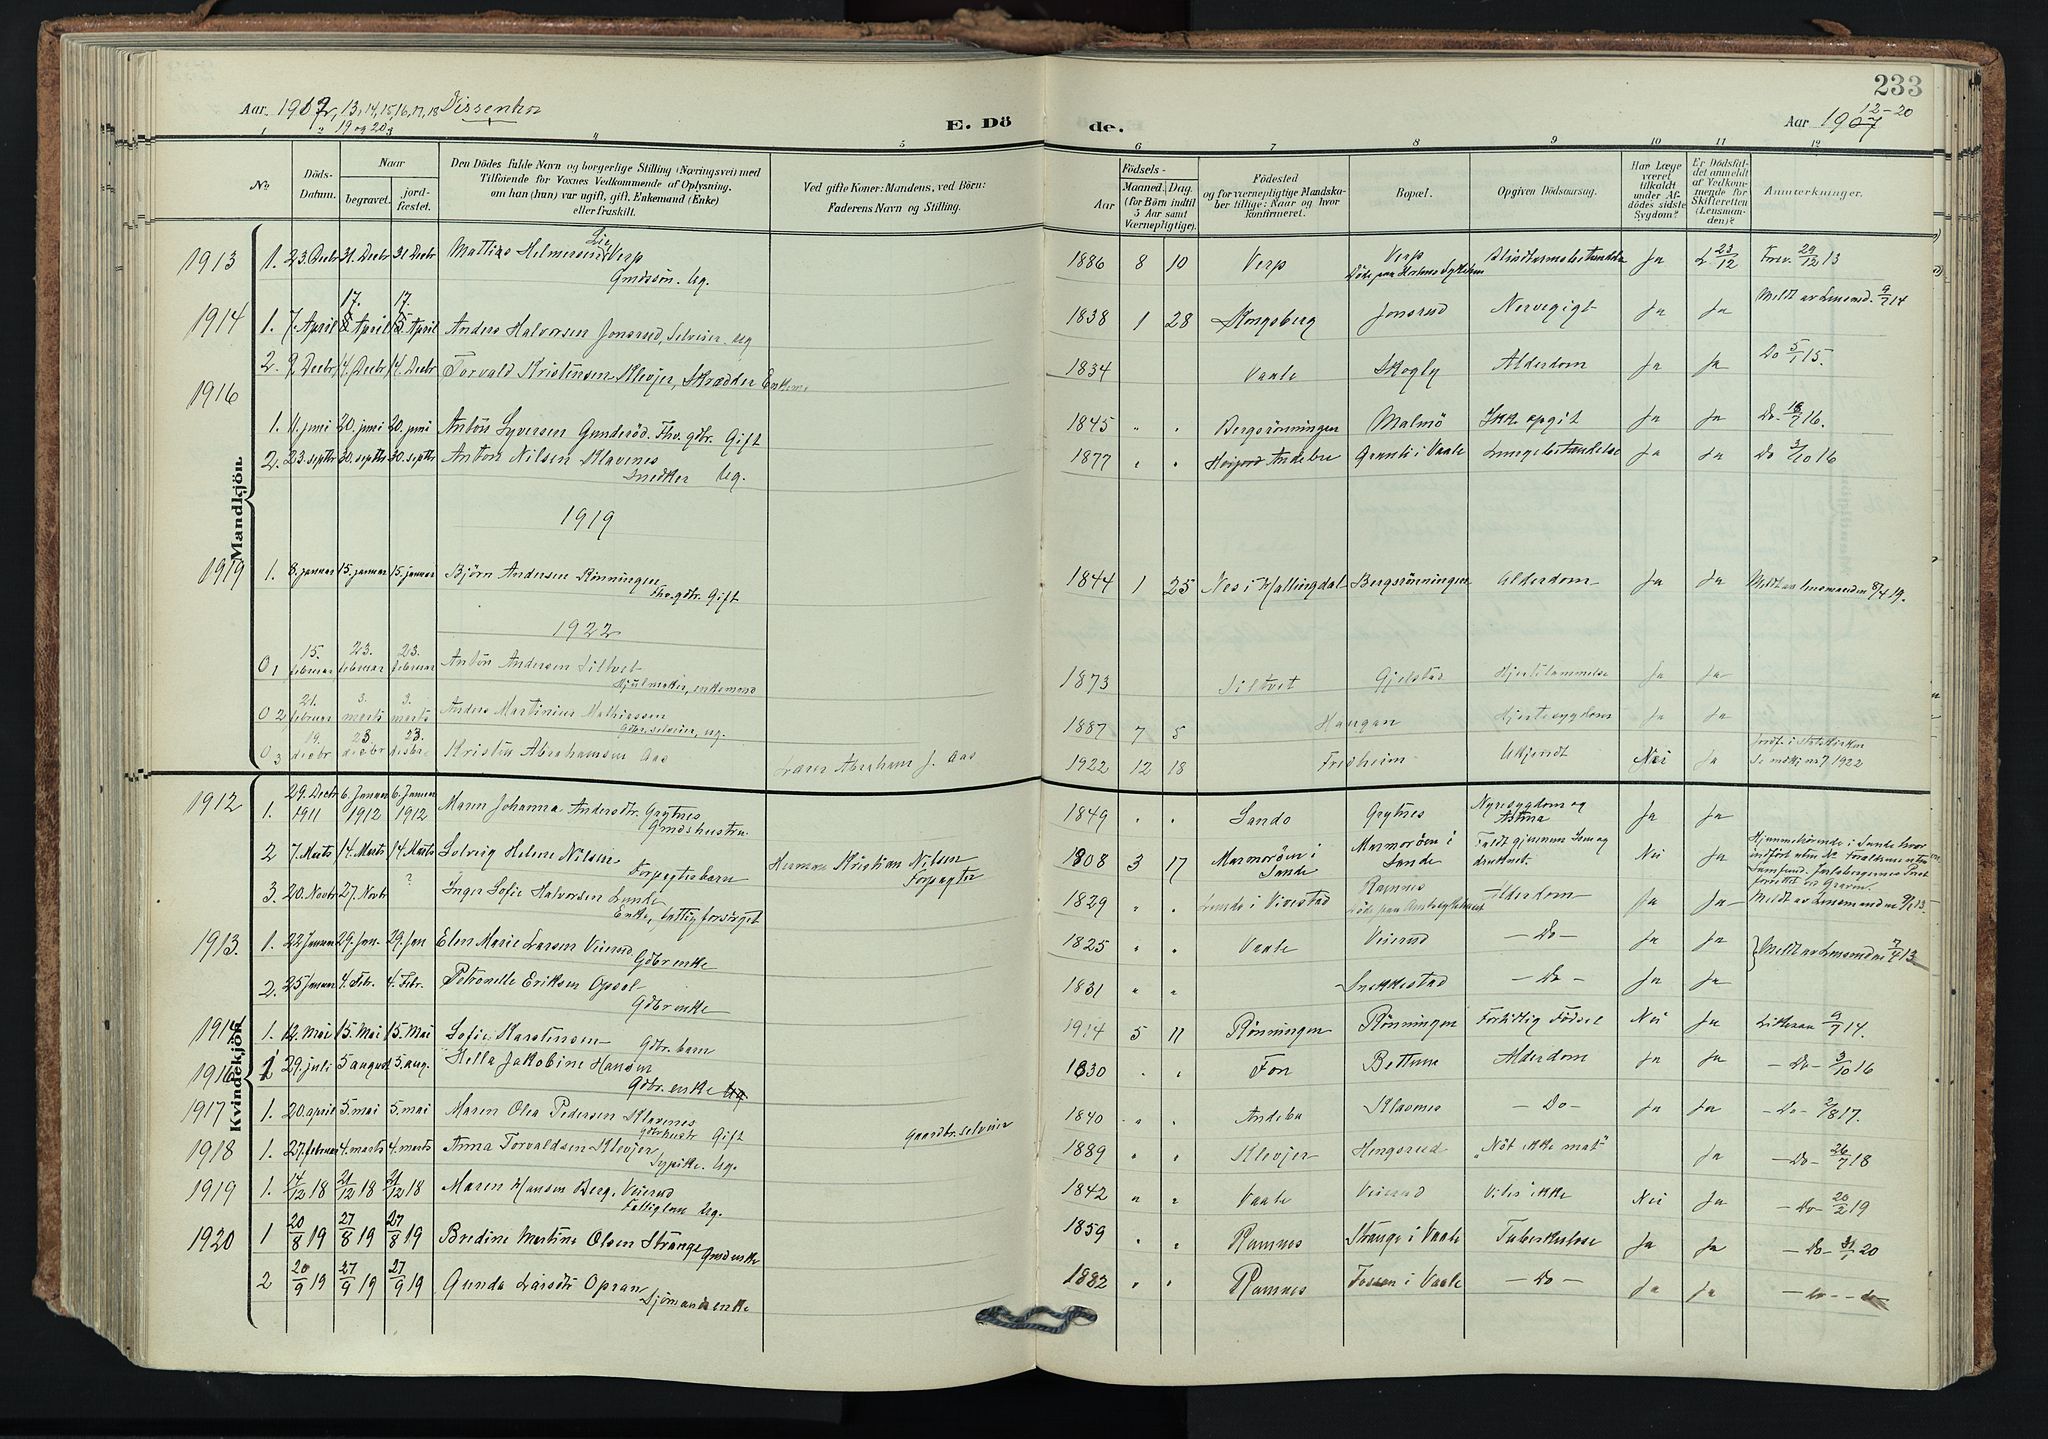 233
Aar 1912, 13, 14, 15, 16, 17, 18 Dissentere
19 og 20
E. Dö de.
Aar 1907 12-20
1 2 3 4 5 6 7 8 9 10 11 12
No
Döds-Datum.
Naar
begravet. jordfæstet.
Den Dödes fulde Navn og borgerlige Stilling (Næringsvei) med Tilföiende for Voxnes Vedkommende af Oplysning, om han (hun) var ugift, gift, Enkemand (Enke) eller fraskilt.
Ved gifte Koner: Mandens, ved Börn: Faderens Navn og Stilling.
Födsels-
Aar
Maaned. Dag.
(for Börn indtil 5 Aar samt Værnepligtige).
Födested og for værnepligtige Mandskaber tillige: Naar og hvor konfirmeret.
Bopæl.
Opgiven Dödsaarsag.
Har Læge været tilkaldt under Afdödes sidste Sygdom?
Er Dödsfaldet anmeldt af Vedkommende for Skifteretten (Lensmanden)?
Anmærkninger.
Mandkjön.
1913 1. 23. Decbr 31. Decbr 31 Decbr Mathias Helmersen Lie Verp Gmdssön. Ug. 1886 8 10 Verp Verp Blindtarmsbetændelse Ja L 23/12 29/12 13
1914 1. 7. April 17. April 17. April Anders Halvorsen Jonsrud, Selveier. ug 1838 1 28 Kongsberg Jonsrud Nervegigt Ja Ja Meldt av Lensmd. 9/7 14
2. 9. Decbr 14. Decbr 14. Decbr Torvald Kristensen Klevjer, Skrædder Enkem 1834 Vaale Skogly Alderdom Ja Ja Do 5/1 15.
1916
1. 11. juni 20. juni 20. juni Anton Syversen Gunderöd. Fhv. gdbr. Gift 1845 " " Bergsrönningen Malmö Ikke opgit Ja Ja Do. 18/7 16.
2. 23. septbr 30. septbr 30. septbr Anton Nilsen Klavenes Snedker Ug. 1877 " " Höijord Andebu Granli i Vaale Lungebetændelse Ja Ja Do 3/10 16
1919
1919 1. 8. januar 15. januar 15. januar Björn Andersen Rönningen Fhv. gdbr. Gift 1844 1 25 Nes i Hallingdal Bergsrönningen Alderdom Ja Ja Meldt av lensmanden 8/4 19.
1922
0 1 15. februar 23. februar 23. februar Anton Andersen Siltvet Hjulmaker, enkemand 1873 Siltvet Gjelstad Hjertelammelse Ja Ja
0 2 21. februar 3. marts 3. marts Anders Martinius Mathiassen Gdbr. selveier, ug. 1887 7 5 Haugan Hjertesygdom Ja Ja
0 3 19. decbr 28. decbr 28. decbr. Kristen Abrahamsen Aas Lærer Abraham J. Aas 1922 12 18 Fredheim Ukjendt Nei Ja 1922
Kvindekjön.
1912 1. 29. Decbr 1911 6. Januar 1912 6. Januar 1912 Maren Johanna Andersdtr. Grytnes Gmdshustru. 1849 " " Sando Grytnes Nyresygdom og Astma Ja Ja
2 7. Marts 14. Marts 14 Marts Solveig Helene Nilsen Forpagterbarn Herman Kristian Nilsen Forpagter 1908 3 17 Marmoröen i Sande Marmoröen i Sande Faldt gjennem Isen og druknet. Nei Ja Hjemmehörende i Sande hvor indfört uten No
3. 20. Novbr 27. Novbr ? Inger Sofie Halvorsen Lunde Enke, fattigforsörget 1829 " " Lunde i Vivestad Ramnes Alderdom Ja Ja Meldt av Lensmanden
1913. 1. 22 Januar 29. Jan. 29. Jan Elen Marie Larsen Veierud Gdbr enke 1825 " " Vaale Veierud - Do - Ja Ja Meldt av Lensmanden 7/4 13
2. 25 Januar 4. Febr. 4. Febr. Petronelle Eriksen Opsal Gdbrenke 1831 " " Snekkestad - Do - Ja Ja
1914 1. 12. Mai 15. Mai 15. Mai Sofie Karstensen Gdbr. barn 1914 5 11 Rönningen Rönningen Fortidlig Födsel Nei Ja 9/7 14.
1916 1 29. juli 5 august 5. aug. Hella Jakobine Hansen Gdbr. enke 1830 " " Fon Bettum Alderdom Ja Ja - Do - 3/10 16
1917 1. 20. april 5. mai 5. mai Maren Olea Pedersen Klavenes Gdbrhustr Gift Gaardbr. selveier 1840 " " Andebu Klavnes - Do - Ja Ja - Do - 2/8 17.
1918 1. 27. februar 4. marts 4. marts Anna Torvaldsen Klevjer Sypike. Ug. 1889 " " Klevjer Hengsrud "Nöt ikke mat" Ja - Do - 26/7 18
1919 1. 14/12 18 21/12 18 21/12 18 Maren Hansen Berg, Veierud Fattiglem Ug. 1842 " " Vaale Veierud Vites ikke Nei Ja - Do - 20/2 19
1920 1 20/8 19 27/8 19 27/8 19 Bredine Martine Olsen Strange Gmdenke 1859 " " Ramnes Strange i Vaale Tuberkulose Ja Ja - Do - 31/1 20
2 20/9 19 27/9 19 27/9 19 Gunda Larsdtr Opran Sjömandsenke 1882 " " Ramnes Fossan i Vaale - Do - Ja Ja - do - - do -